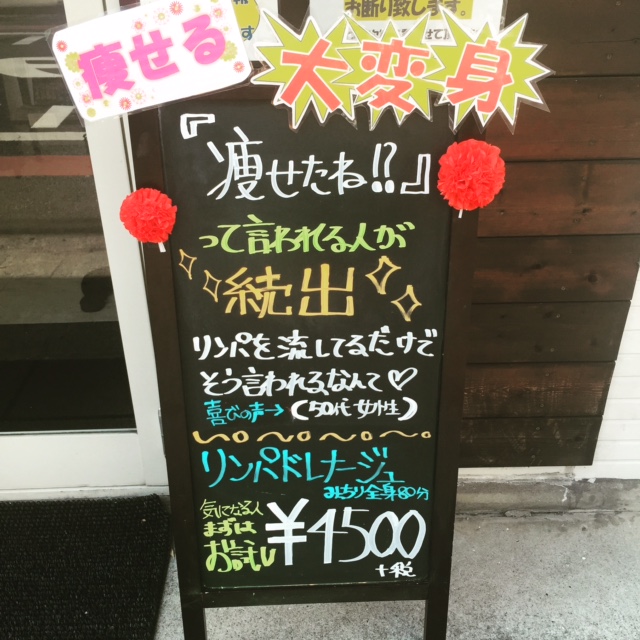 お断り致します。
痩せる
大変身
『痩せたね!!』
って言われる人が
続出
リンパを流してるだけで
そう言われるなんて♡
喜びの声→(50代 女性)
リンパドレナージュ
みっちり全身80分
気になる人
まずは
お試し
¥4500
+税